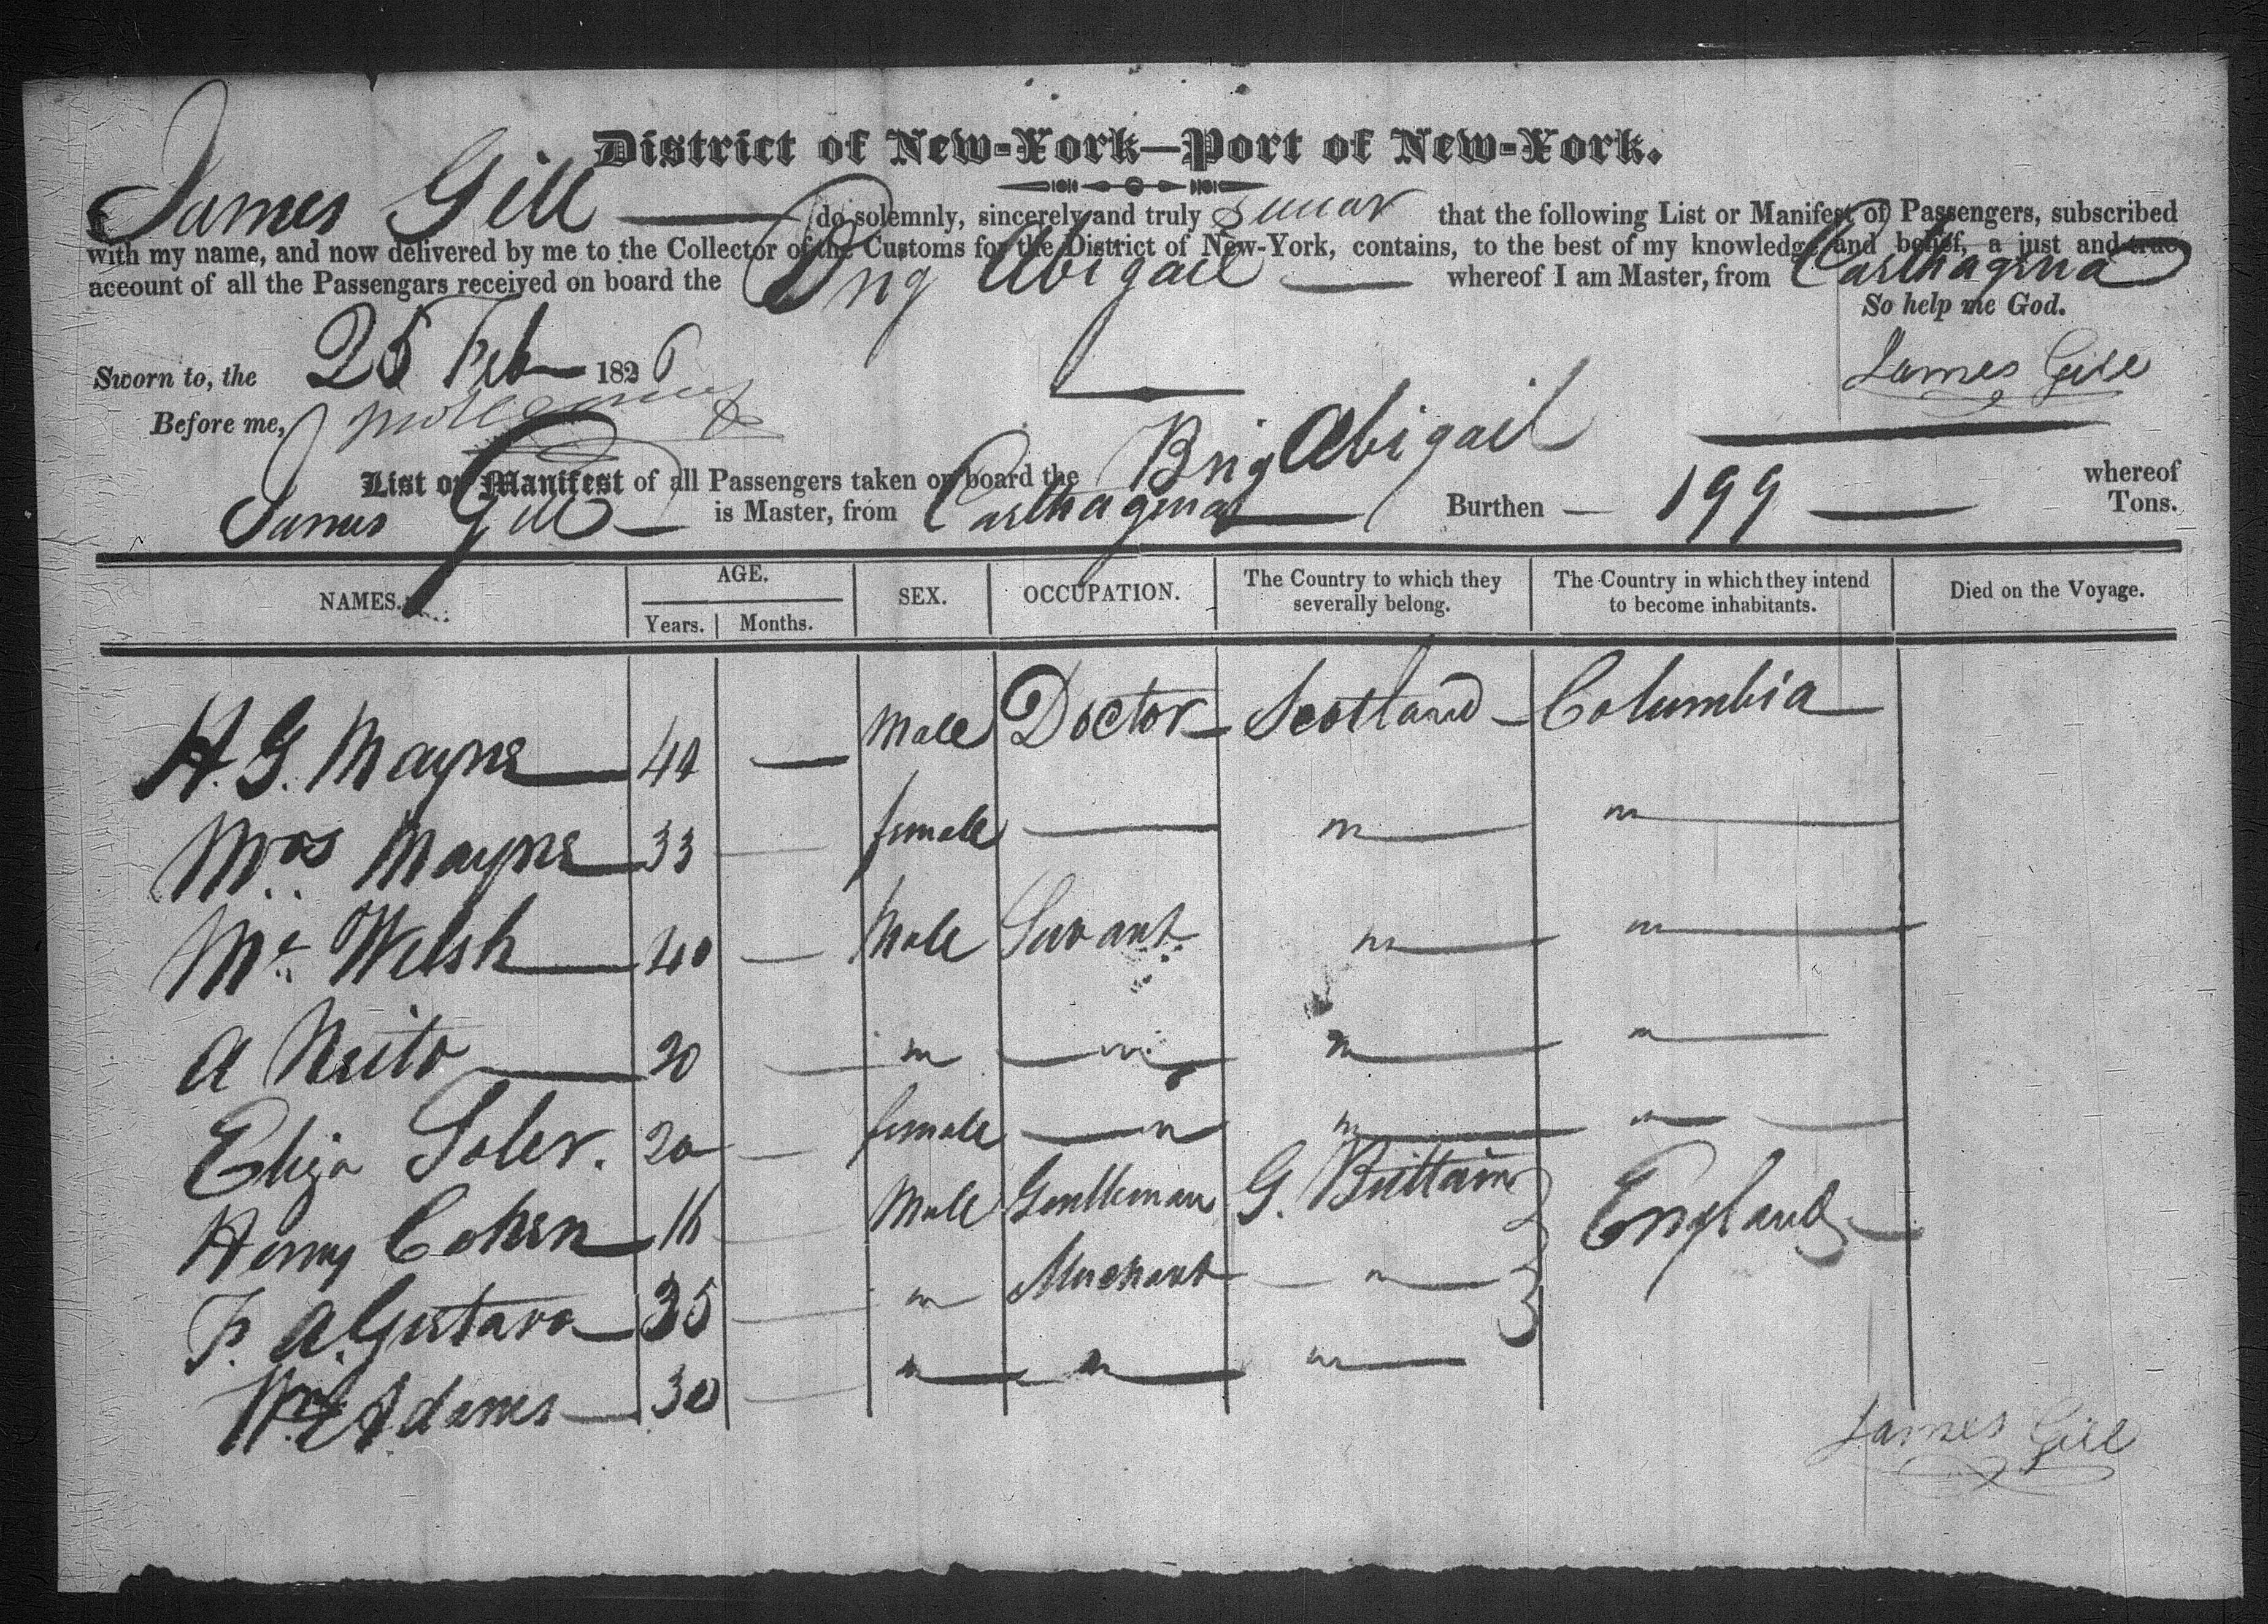 District of New-York—Port of New-York.
James Gill — do solemnly, sincerely and truly swear that the following List or Manifest of Passengers, subscribed
with my name, and now delivered by me to the Collector of the Customs for the District of New-York, contains, to the best of my knowledge and belief, a just and true
account of all the Passengars received on board the Brig Abigail — whereof I am Master, from Carthagena
So help me God.
Sworn to, the 25 Feb 1826
James Gill
Before me,
List or Manifest of all Passengers taken on board the Brig Abigail whereof
James Gill is Master, from Carthagena — Burthen — 199 — Tons.
NAMES. AGE. SEX. OCCUPATION. The Country to which they severally belong. The Country in which they intend to become inhabitants. Died on the Voyage.
Years. Months.
H. G. Mayne 44 — Male Doctor Scotland Columbia
Mrs Mayne 33 — female — " "
Mr Welsh 40 — Male Servant " "
A Neito 20 — " " " "
Eliza Soler. 20 — female " " "
Henry Cohen 16 — Male Gentleman G. Brittain England
F. A. Gustava 35 — " Merchant "
Wm Adams 30 — " " "
James Gill